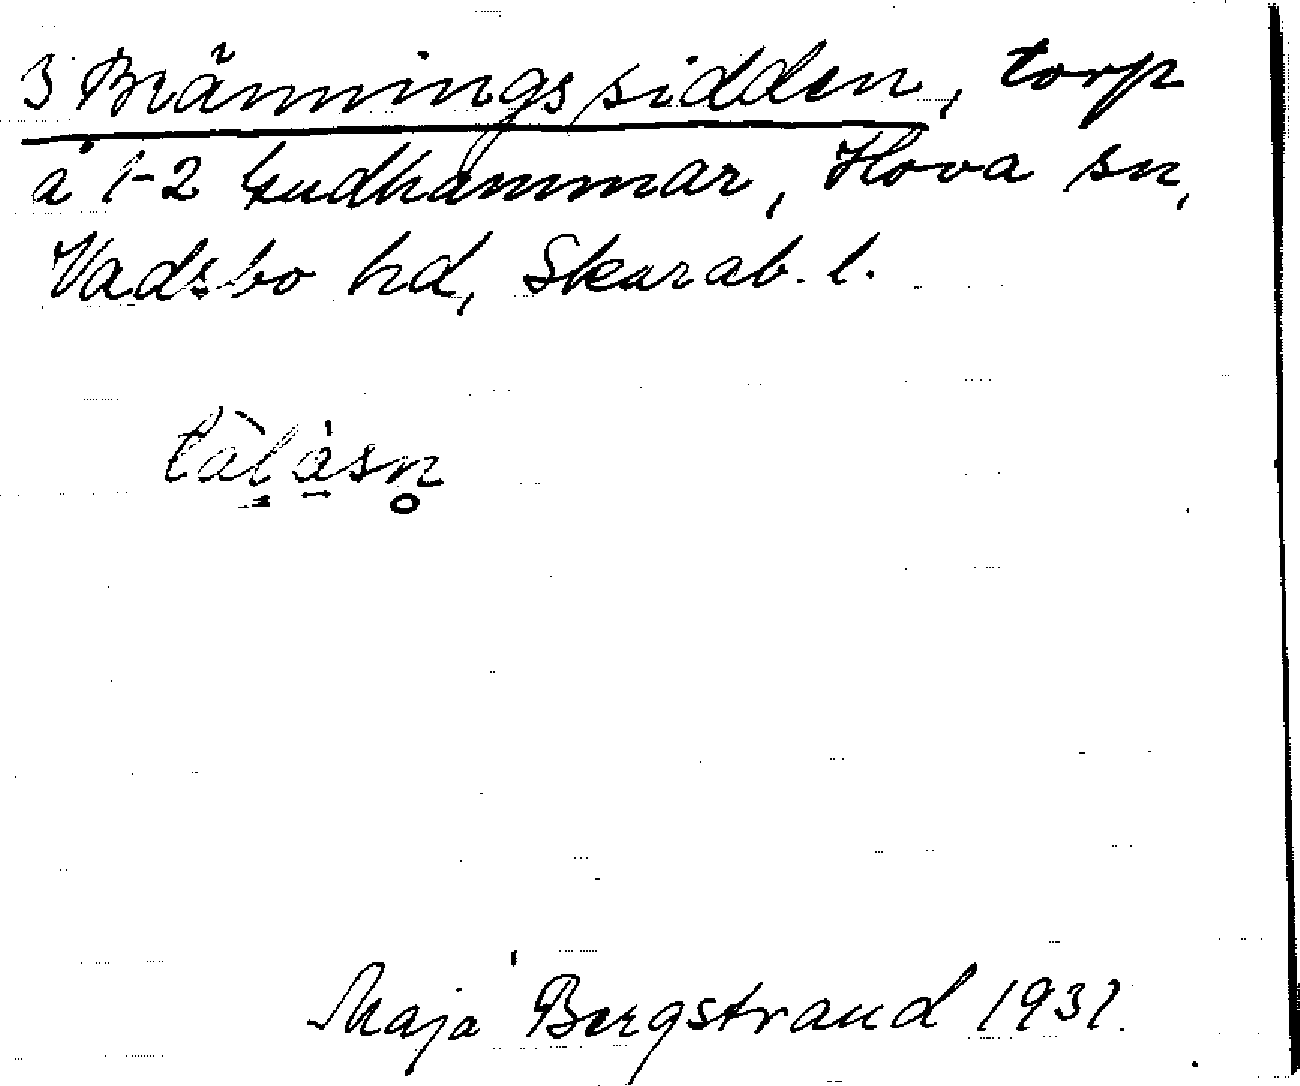 3 Bränningssidden, torp
å 1-2 Gudhammar, Hova sn,
Vadsbo hd, Skarab. l.
tàlåsn̥
Maja Bergstrand 1931.